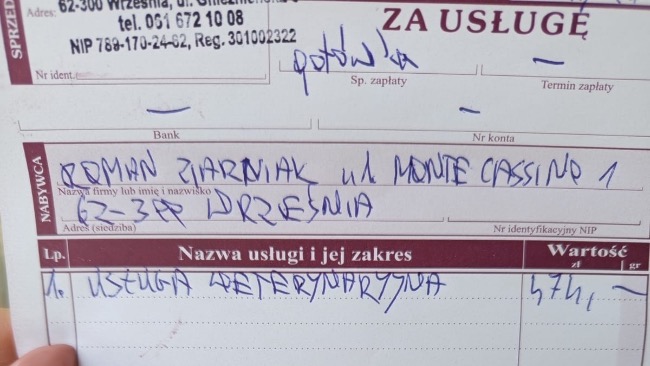 SPRZED
Adres: 62-300 Września, ul.
tel. 061 672 10 08
NIP 789-170-24-62, Reg. 301002322
Nr ident.
ZA USŁUGĘ
gotówka –
Sp. zapłaty Termin zapłaty
– –
Bank Nr konta
NABYWCA
ROMAN ZIARNIAK ul. MONTE CASSINO 1
Nazwa firmy lub imię i nazwisko
62-300 WRZEŚNIA
Adres (siedziba) Nr identyfikacyjny NIP
Lp. Nazwa usługi i jej zakres Wartość
zł gr
1. USŁUGA WETERYNARYJNA 474, –